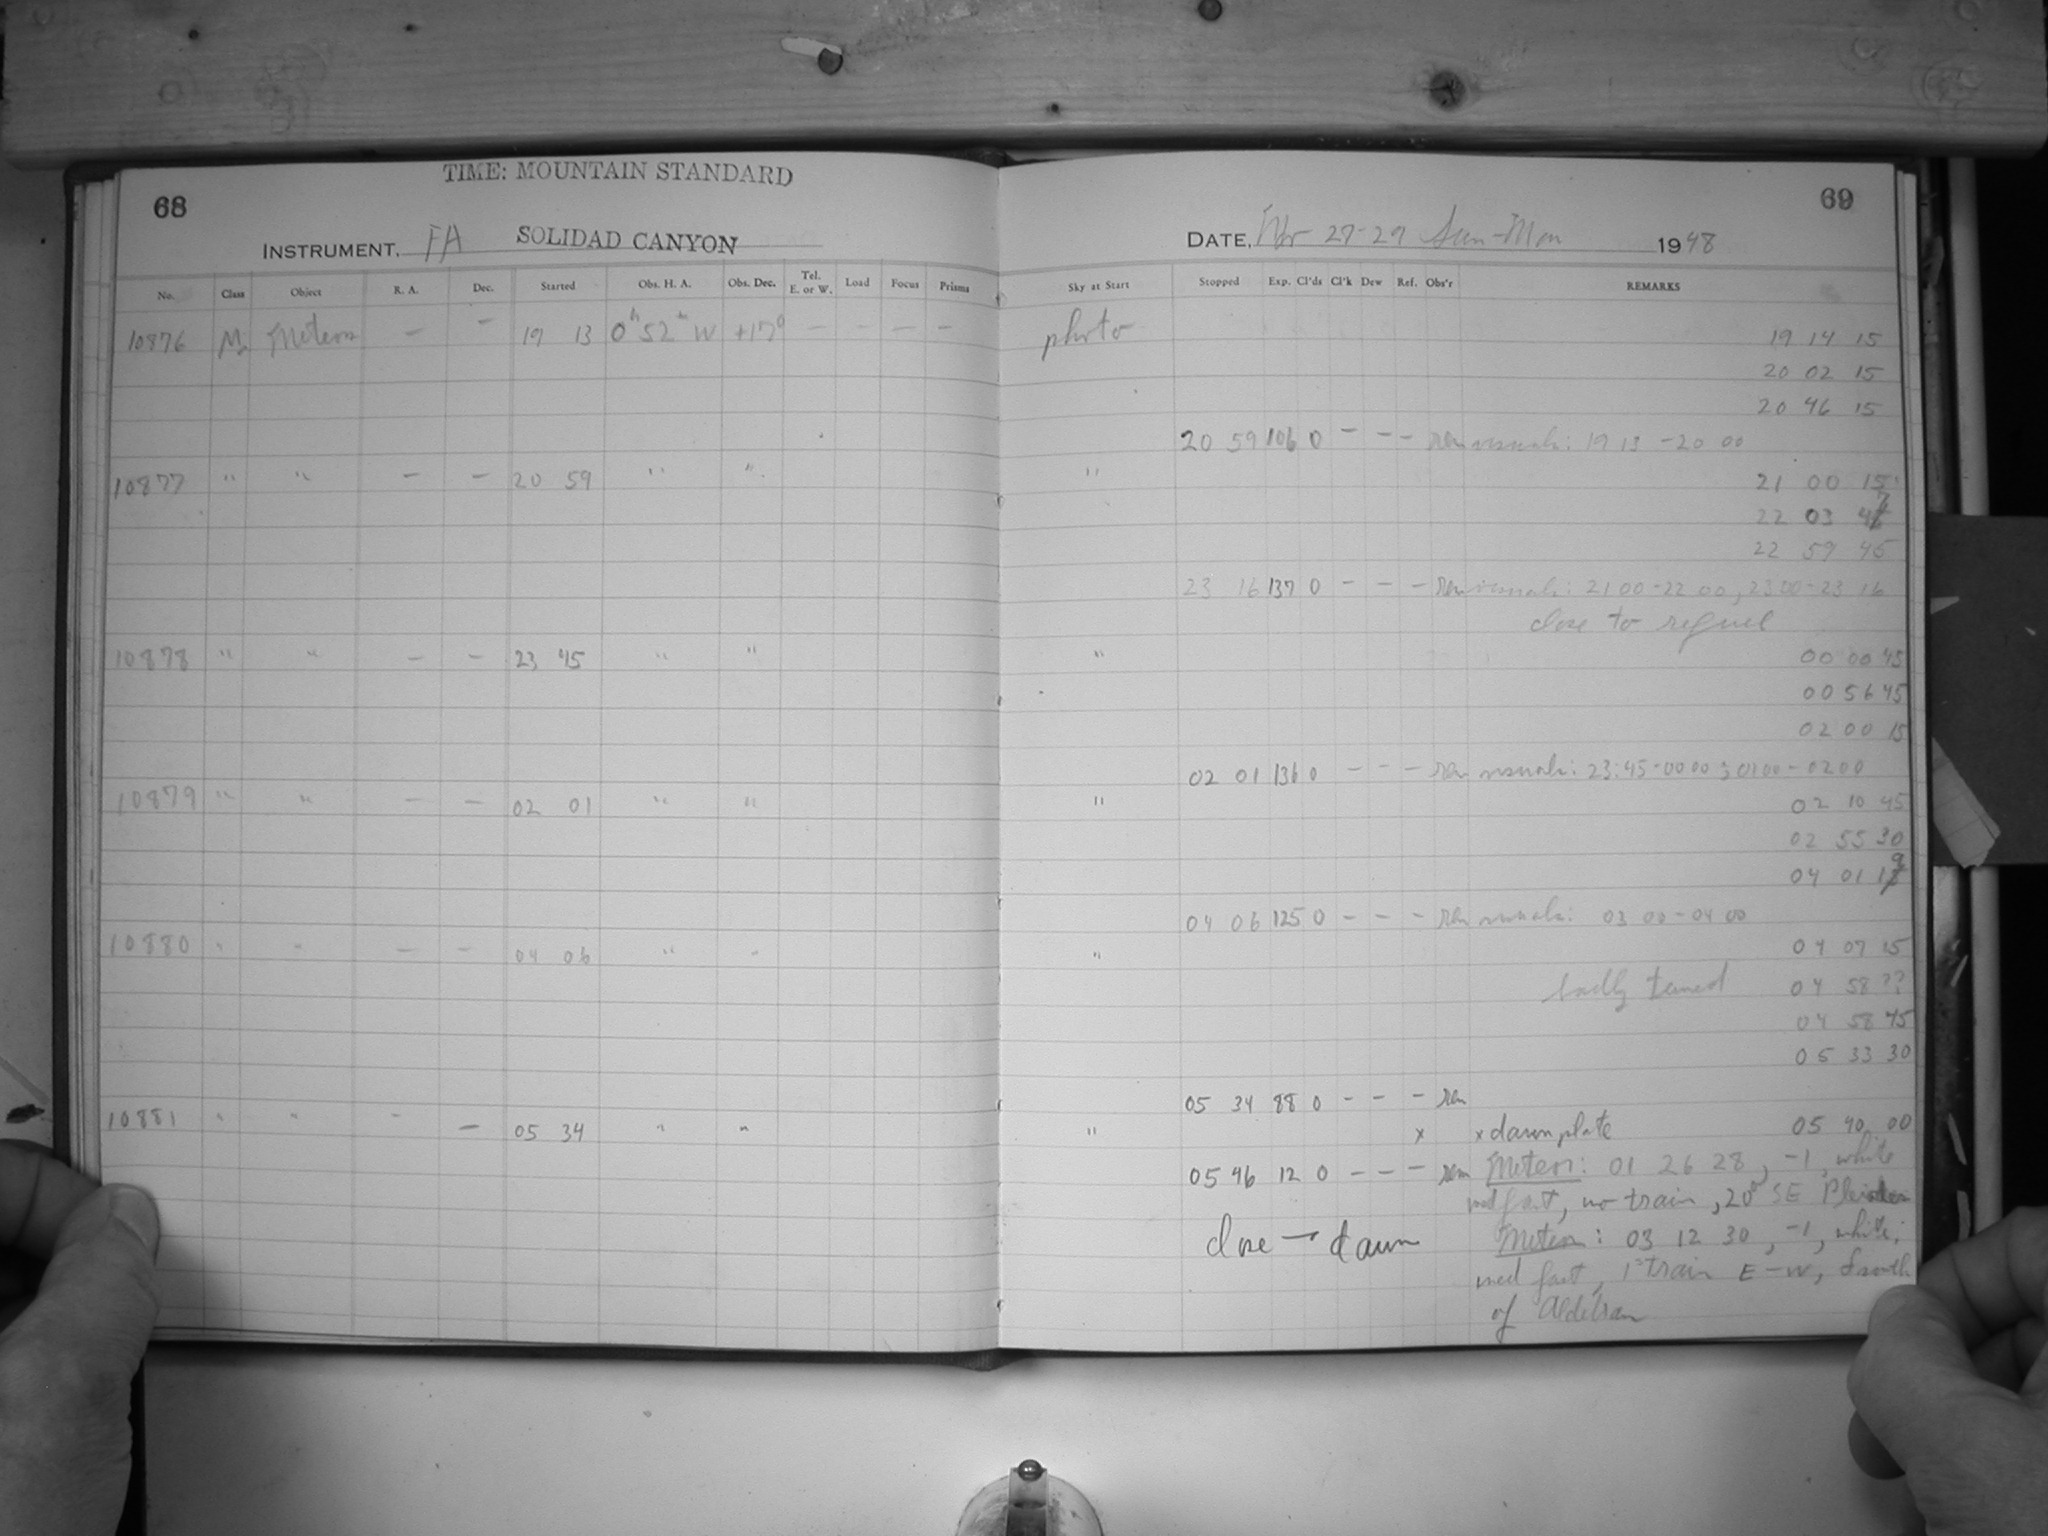 TIME: MOUNTAIN STANDARD
68
INSTRUMENT, FA SOLIDAD CANYON
No. Class Object R. A. Dec. Started Obs. H. A. Obs. Dec. Tel. E. or W. Load Focus Prisms
10876 M Meteors — — 19 13 0h 52m W +17° — — — —
10877 " " — — 20 59 " "
10878 " " — — 23 45 " "
10879 " " — — 02 01 " "
10880 " " — — 04 06 " "
10881 " " - — 05 34 " "
69
DATE, 27-29 Sun-Mon 1948
Sky at Start Stopped Exp. Cl'ds Cl'k Dew Ref. Obs'r REMARKS
photo 19 14 15
20 02 15
20 46 15
20 59 106 0 — — — visuals: 19 13 - 20 00
" 21 00 15
22 03 47
22 59 45
23 16 137 0 — — — visuals: 21 00 - 22 00, 23 00 - 23 16
close to
" 00 00 45
00 56 45
02 00 15
02 01 136 0 — — — visuals: 23:45-00 00; 01 00 - 02 00
" 02 10 45
02 55 30
04 01 19
04 06 125 0 — — — visuals: 03 00 - 04 00
" 04 07 15
badly 04 58 ??
04 58 45
05 33 30
05 34 88 0 — — —
" x x dawn plate 05 40 00
05 46 12 0 — — — Meteor: 01 26 28, -1, white
med fast, no train, 20° SE Pleiades
close — dawn Meteor: 03 12 30, -1, white,
med fast, 1s train E-W, South
of Aldebaran